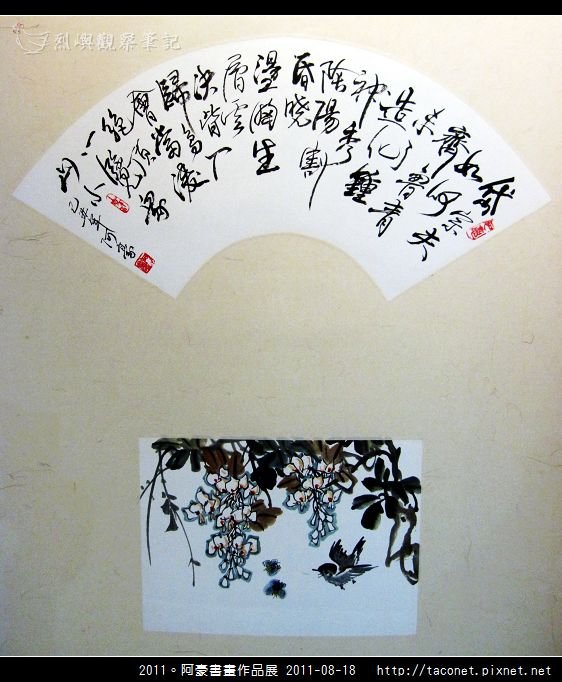 烈嶼觀察筆記
岱宗夫
如何
齊魯青
未了
造化鍾
神秀
陰陽割
昏曉
盪胸生
層云
決眥入
歸鳥
會當凌
絕頂
一覽眾
山小
年阿豪
2011。阿豪書畫作品展 2011-08-18 http://taconet.pixnet.net